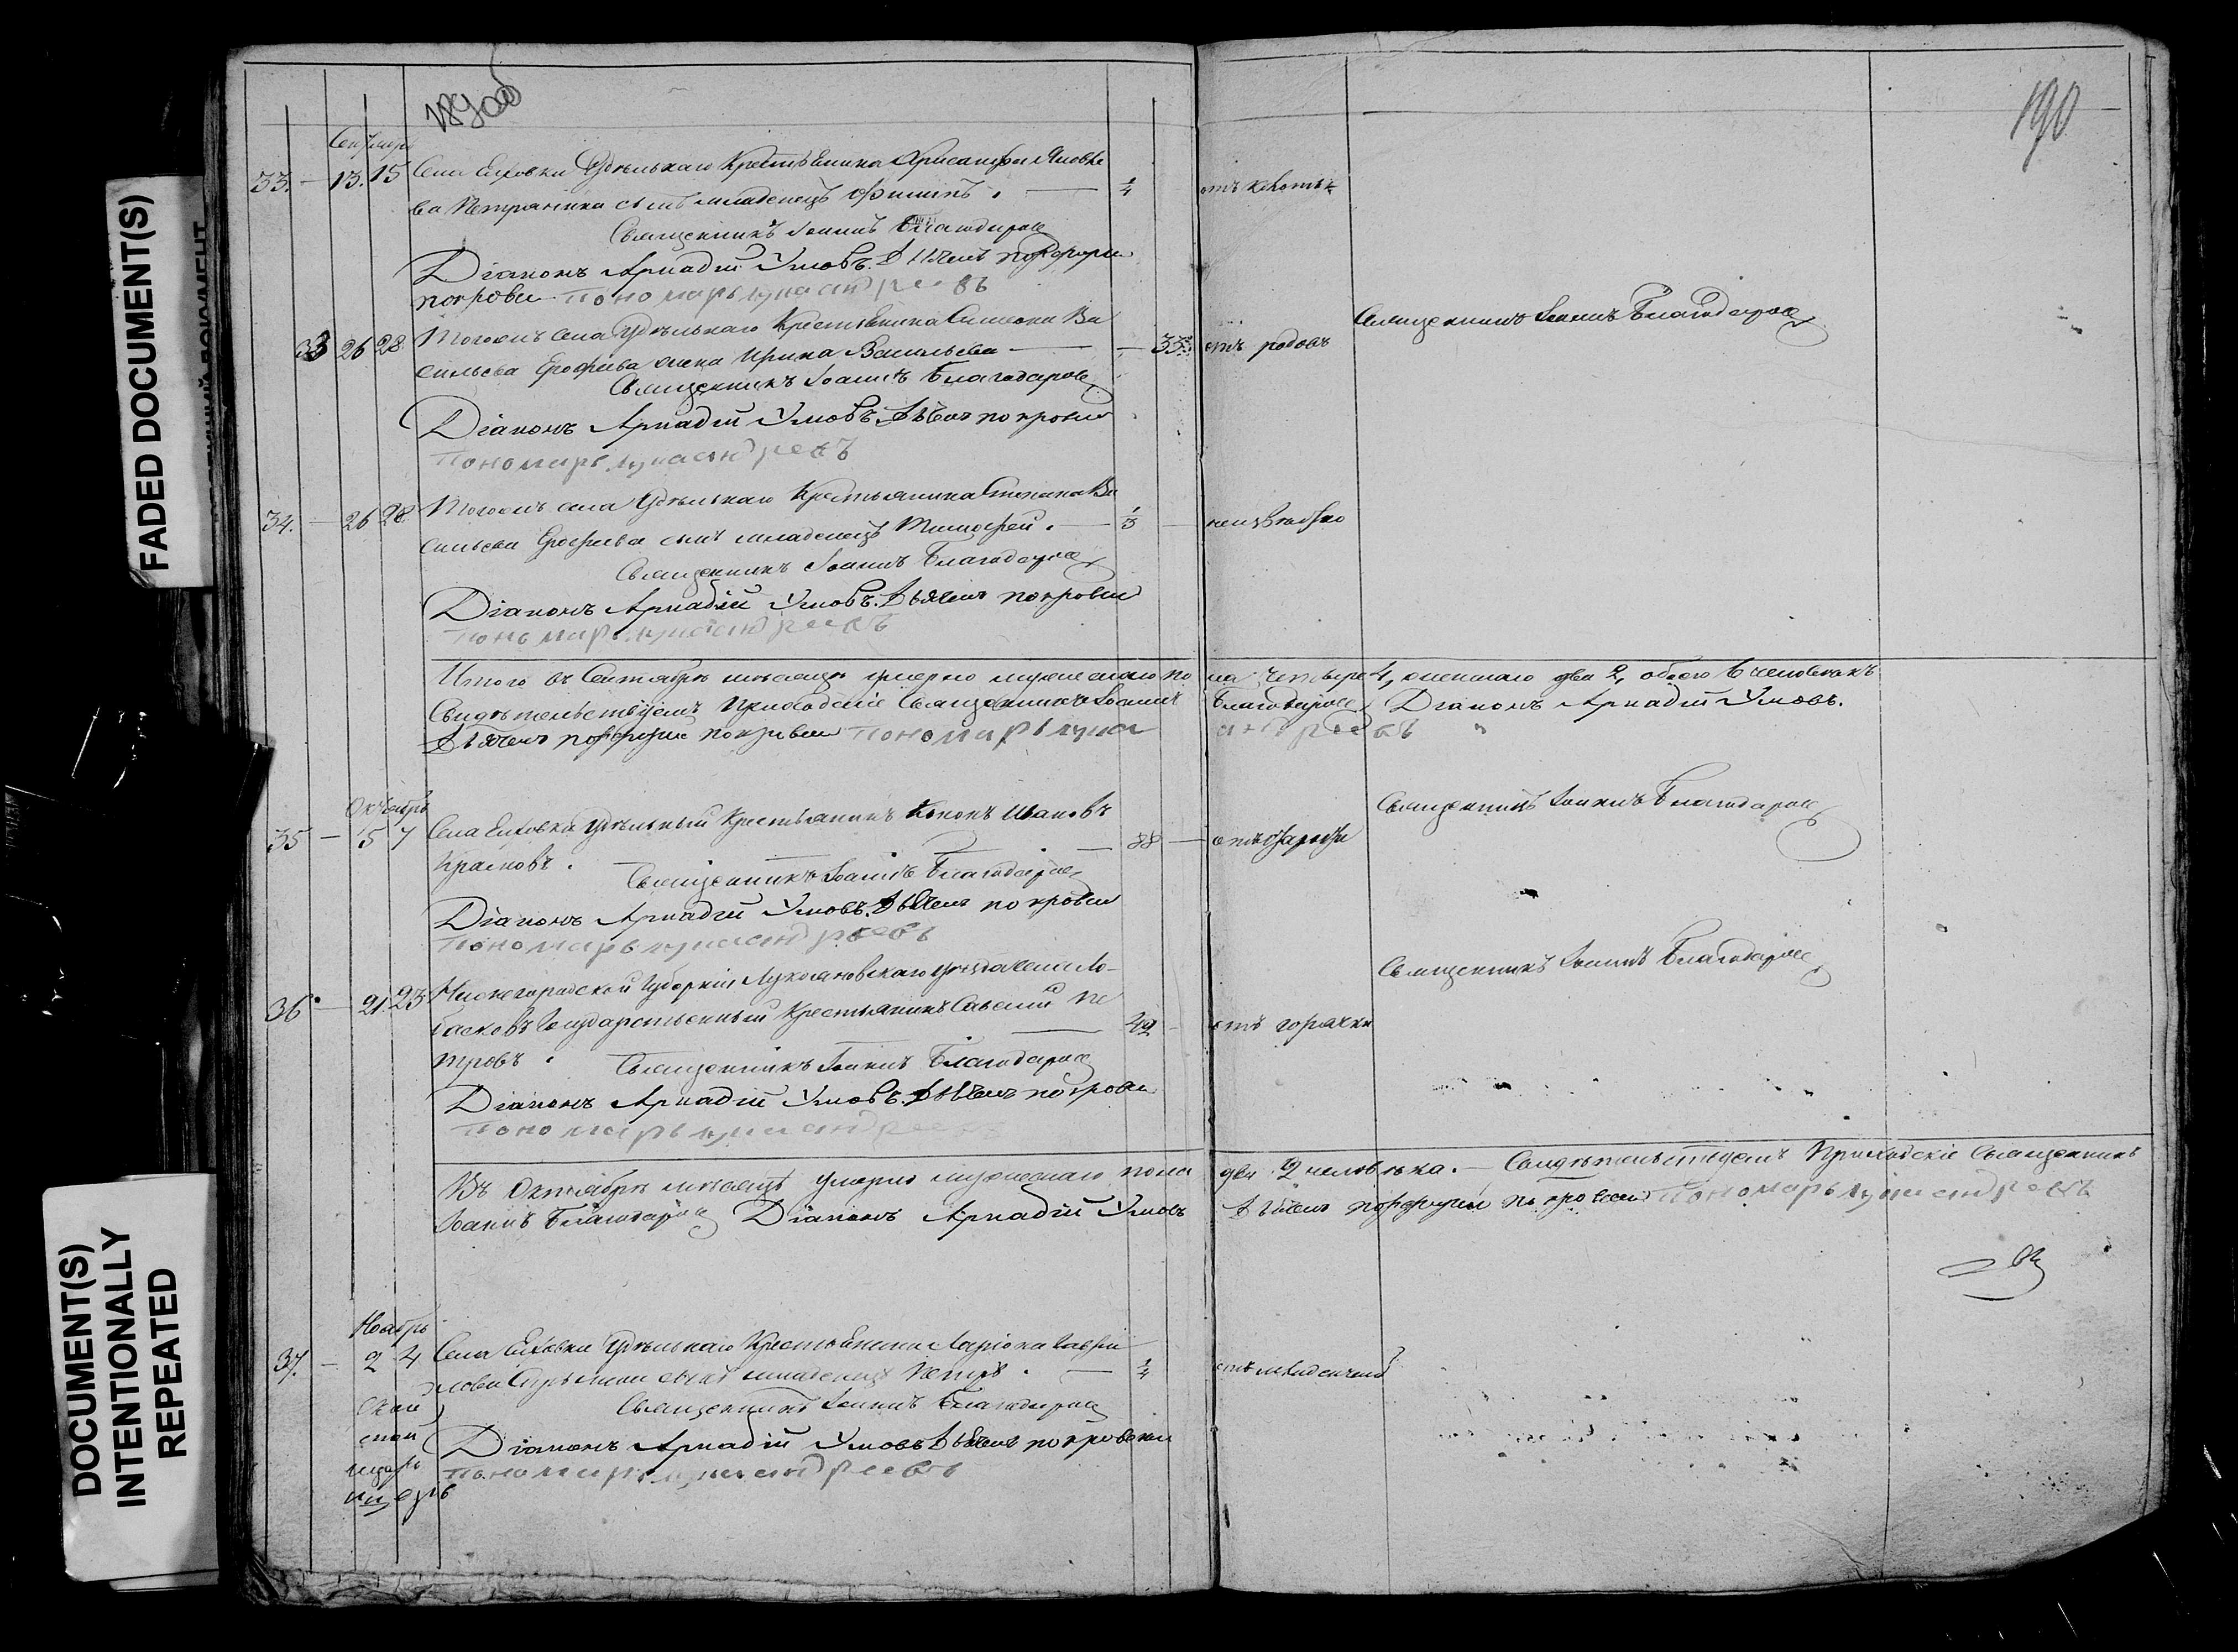 FADED DOCUMENT(S)
DOCUMENT(S)
INTENTIONALLY
REPEATED
189об
190
Сентябрь
33. — 13. 15 Села Елховки Удѣльнаго Крестьянина Хрисанфа Яковле
ва Петрянина сынъ младенецъ Филипъ. — 1/4
Священникъ Іоаннъ Благодаровъ
Діаконъ Аркадій Умовъ. Дьячекъ
Пономарь Лука Андреевъ
33 26 28 Тогожъ села Удѣльнаго Крестьянина Симеона Ва
сильева Ерофѣева жена Ирина Васильева — 33. отъ родовъ
Священникъ Іоаннъ Благодаровъ
Священникъ Іоаннъ Благодаровъ
Діаконъ Аркадій Умовъ. Дьячекъ
Пономарь Лука Андреевъ
34. — 26 28 Тогожъ села Удѣльнаго Крестьянина Ва
сильева Ерофѣева сынъ младенецъ Тимофей. — неизвѣстно
Священникъ Іоаннъ Благодаровъ
Діаконъ Аркадій Умовъ. Дьячекъ
Пономарь Лука Андреевъ
Итого въ Сентябрѣ мѣсяцѣ умерло мужескаго по ла четыре 4, женскаго два 2, обоего 6 человѣкъ
Свидѣтельствуемъ Приходскіе Священникъ Іоаннъ Благодаровъ Діаконъ Аркадій Умовъ.
Дьячекъ Пономарь Лука Андреевъ
Октябрь
35 — 5 7 Села Елховки удѣльный Крестьянинъ Кононъ Ивановъ
Красновъ. — 88 — отъ старости
Священникъ Іоаннъ Благодаровъ
Священникъ Іоаннъ Благодаровъ
Діаконъ Аркадій Умовъ. Дьячекъ
Пономарь Лука Андреевъ
36. — 21. 23 Нижегородской Губерніи Лукояновскаго уѣзда села Ло-
басковъ Государственный Крестьянинъ Савелий Пе
тровъ. — 42 — отъ горячки
Священникъ Іоаннъ Благодаровъ
Священникъ Іоаннъ Благодаровъ
Діаконъ Аркадій Умовъ. Дьячекъ
Пономарь Лука Андреевъ
Въ Октябрѣ мѣсяцѣ умерло мужескаго пола два 2 человѣка. — Свидѣтельствуемъ Приходскіе Священникъ
Іоаннъ Благодаровъ Діаконъ Аркадій Умовъ Дьячекъ Пономарь Лука Андреевъ
Ноябрь
37. — 2 4 Села Елховки Удѣльнаго Крестьянина Ларіона Гаври
лова сынъ младенецъ Петръ. — 1/4
Священникъ Іоаннъ Благодаровъ
Діаконъ Аркадій Умовъ Дьячекъ
Пономарь Лука Андреевъ